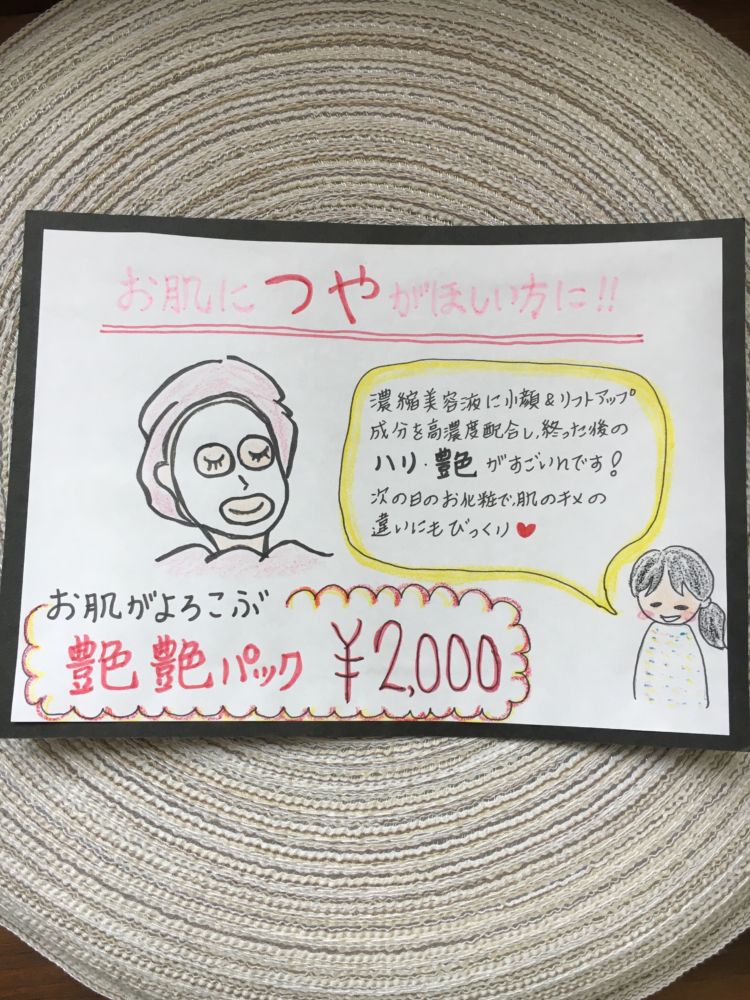 お肌につやがほしい方に!!
濃縮美容液に小顔&リフトアップ
成分を高濃度配合し、終った後の
ハリ・艶がすごいんです!
次の日のお化粧で、肌のキメの
違いにもびっくり♥
お肌がよろこぶ
艶艶パック ¥2,000